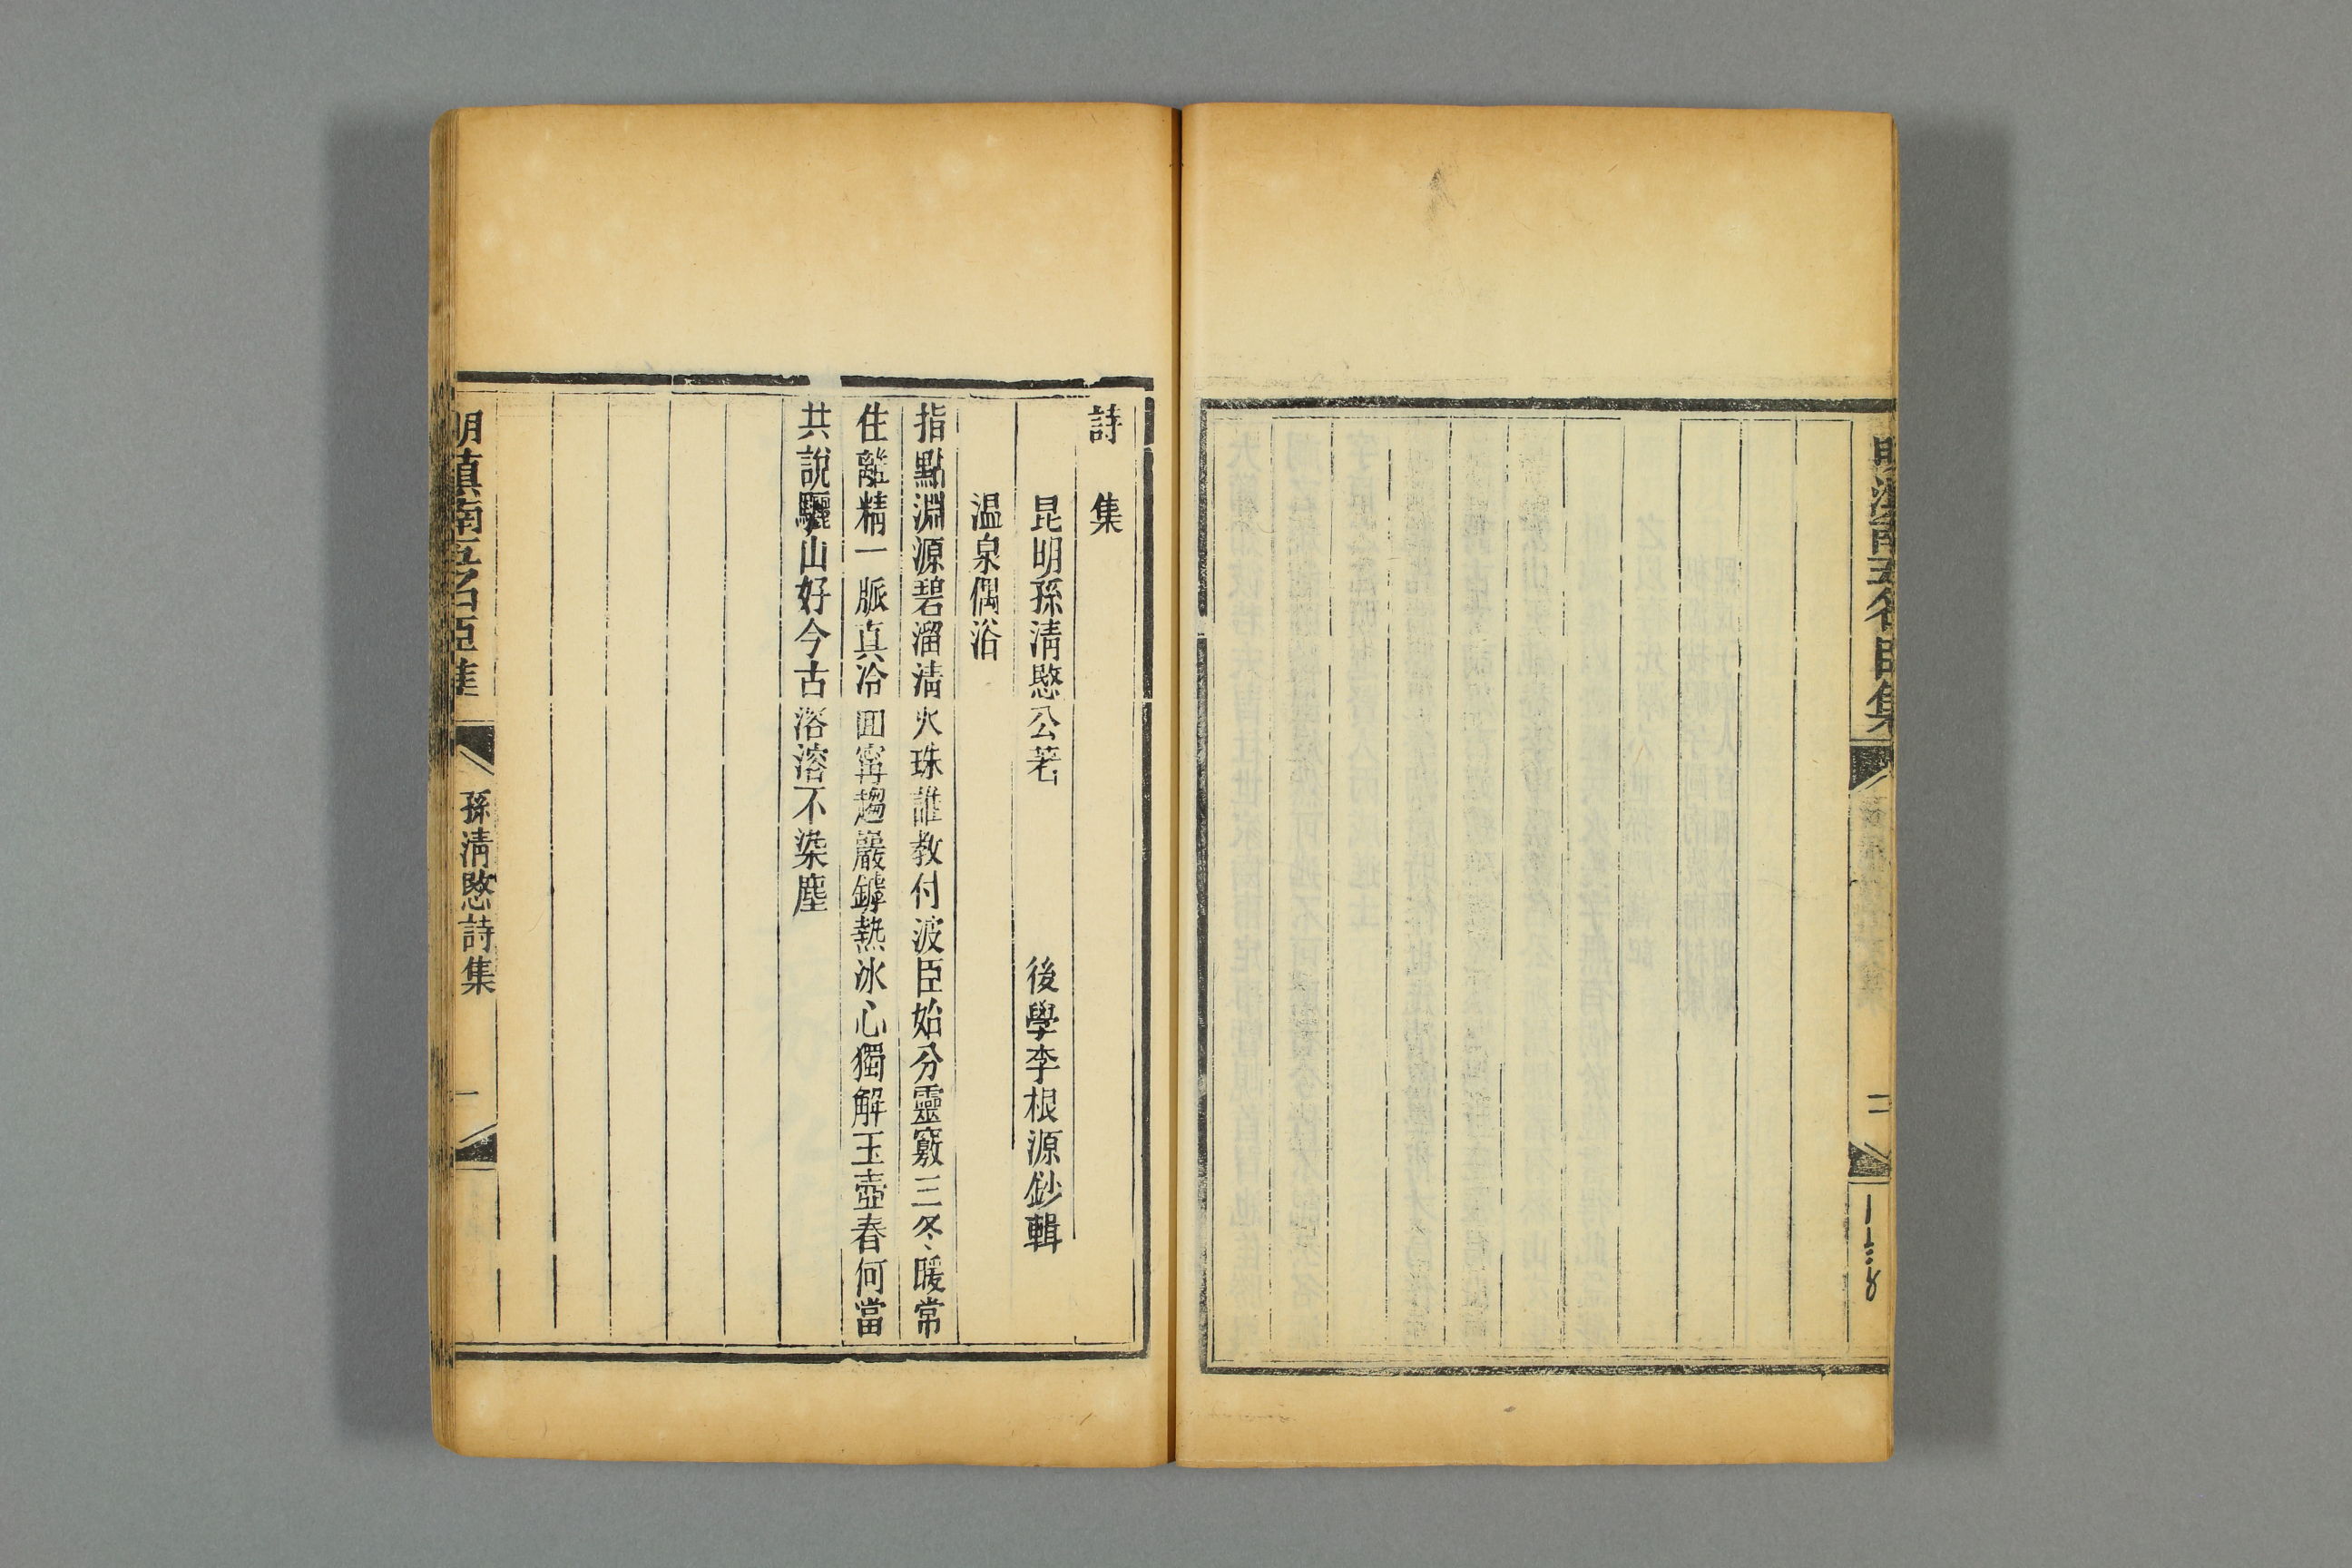 詩集
昆明孫淸愍公著　後學李根源鈔輯
温泉偶浴
指點淵源碧溜淸火珠誰教付波臣始分靈竅三冬暖常
住離精一脈真冷面寗趨巖罅熱冰心獨解玉壺春何當
共說驪山好今古溶溶不染塵
明滇南五名臣集
孫淸愍詩集
一
明滇南五名臣集
二